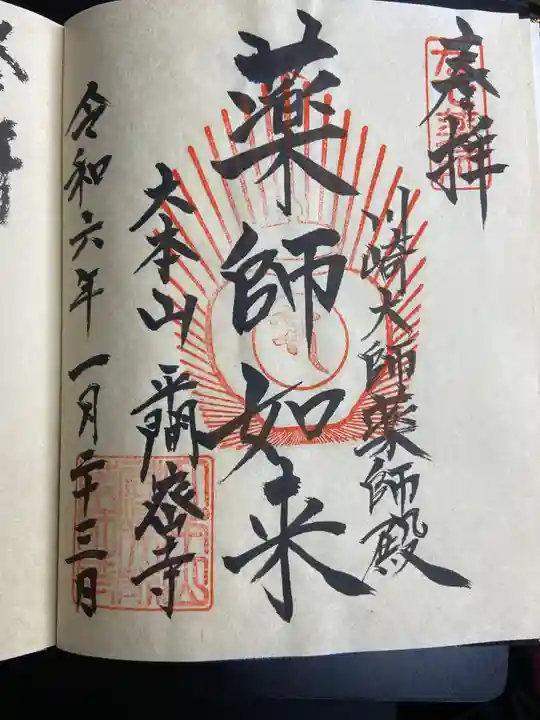 奉拝
川崎大師薬師殿
薬師如来
大本山 平間寺
令和六年 一月二十三日